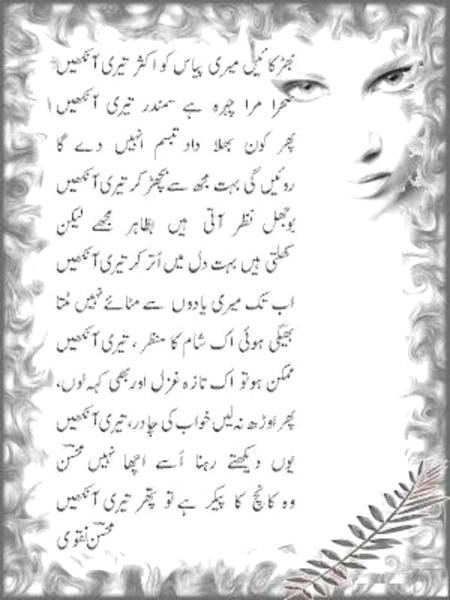 بھڑکائیں میری پیاس کو اکثر تیری آنکھیں
صحرا مرا چہرہ ہے سمندر تیری آنکھیں
پھر کون بھلا داد تبسم انہیں دے گا
روئیں گی بہت مجھ سے بچھڑ کر تیری آنکھیں
بوجھل نظر آتی ہیں بظاہر مجھے لیکن
کھلتی ہیں بہت دل میں اُتر کر تیری آنکھیں
اب تک میری یادوں سے مٹائے نہیں مٹتا
بھیگی ہوئی اک شام کا منظر ، تیری آنکھیں
ممکن ہو تو اک تازہ غزل اور بھی کہہ لوں،
پھر اوڑھ نہ لیں خواب کی چادر، تیری آنکھیں
یوں دیکھتے رہنا اُسے اچھا نہیں محسنؔ
وہ کانچ کا پیکر ہے تو پتھر تیری آنکھیں
محسنؔ نقوی